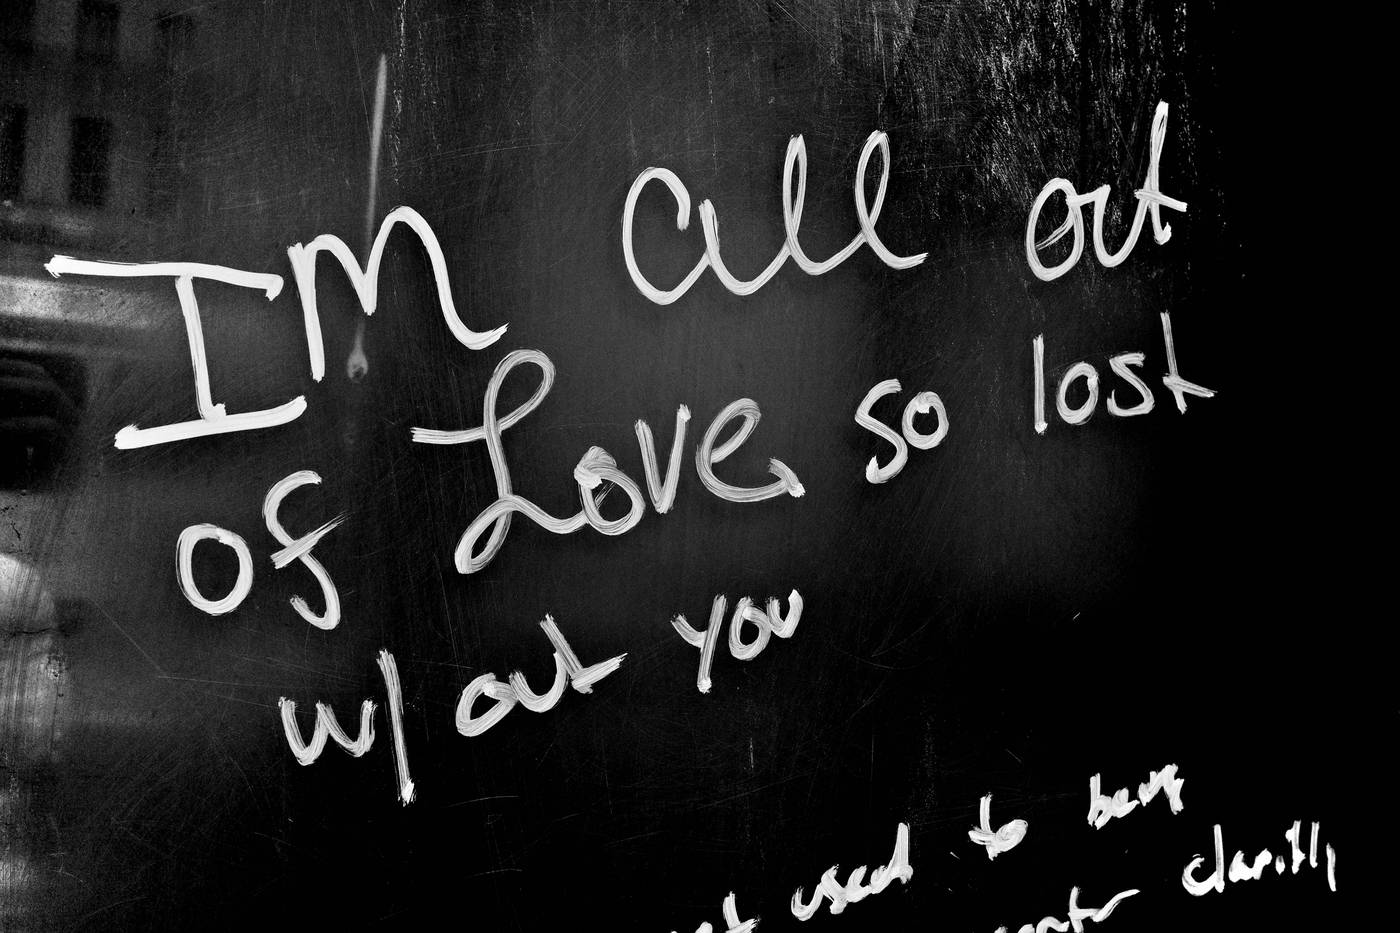 Im all out
of Love so lost
w/out you
used to being
clarilly